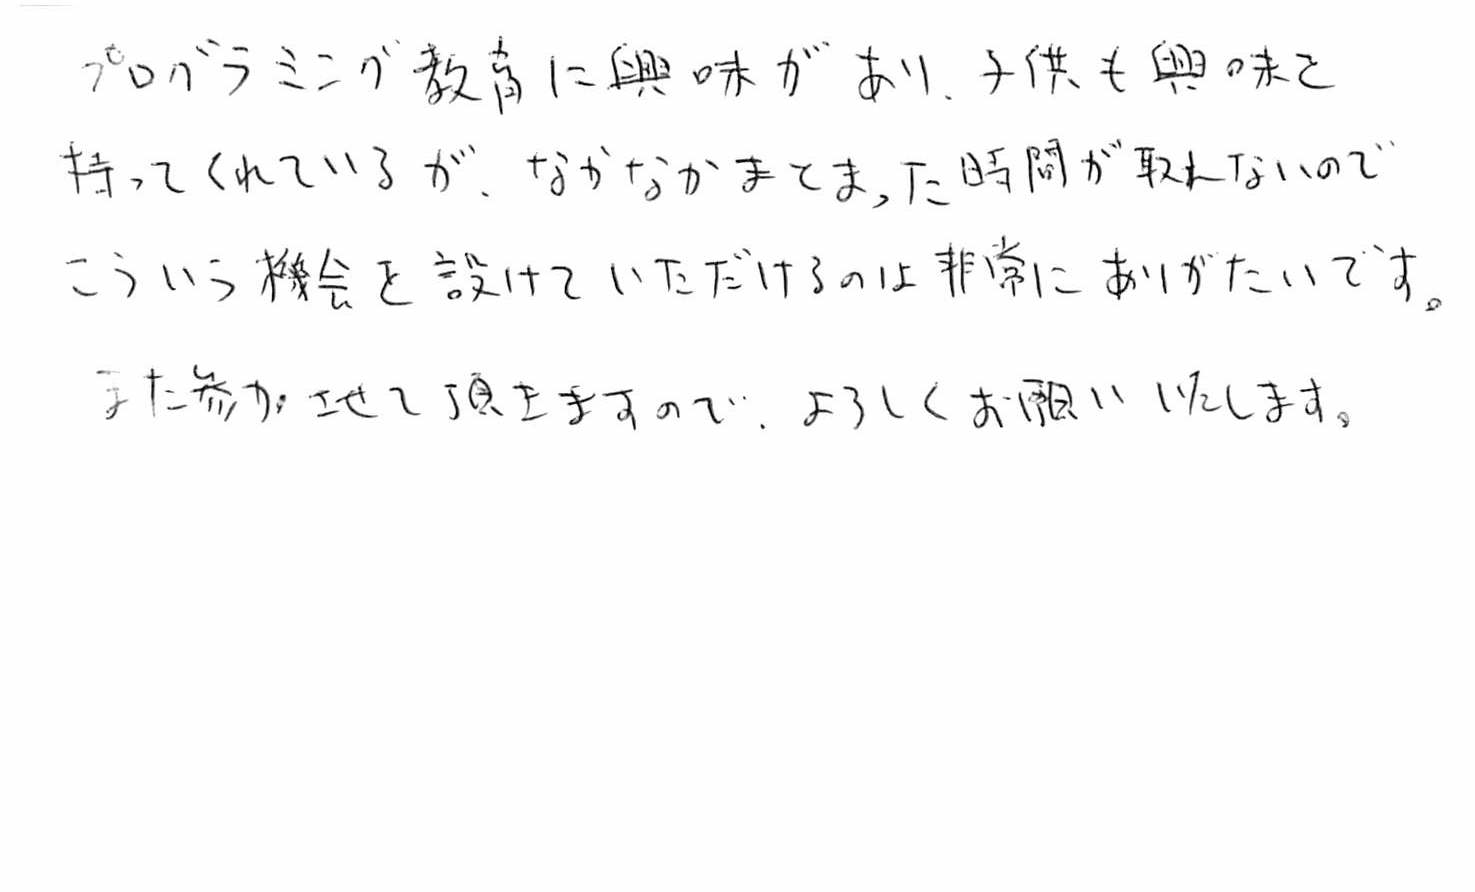 プログラミング教育に興味があり、子供も興味を
持ってくれているが、なかなかまとまった時間が取れないので
こういう機会を設けていただけるのは非常にありがたいです。
また参加させて頂きますので、よろしくお願い致します。